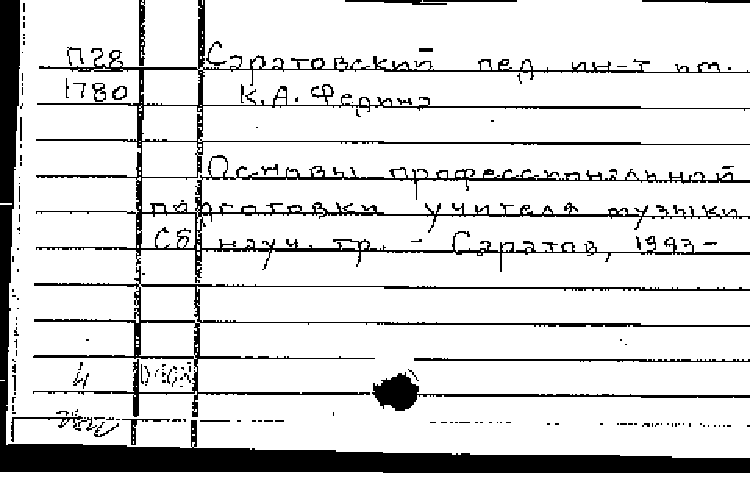 П28 Саратовский пед. ин-т им.
1780 К.А. Федина
Основы профессиональной
подготовки учителя музыки
Сб. науч. тр. - Саратов, 1993-